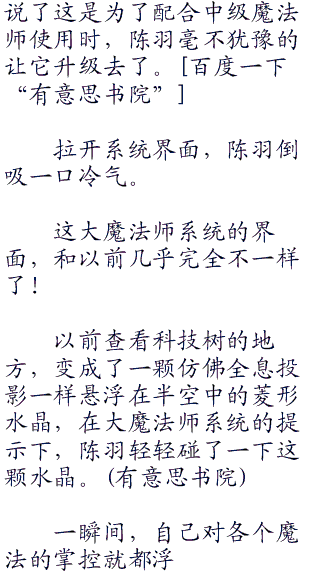 说了这是为了配合中级魔法
师使用时，陈羽毫不犹豫的
让它升级去了。[百度一下
“有意思书院”]
拉开系统界面，陈羽倒
吸一口冷气。
这大魔法师系统的界
面，和以前几乎完全不一样
了！
以前查看科技树的地
方，变成了一颗仿佛全息投
影一样悬浮在半空中的菱形
水晶，在大魔法师系统的提
示下，陈羽轻轻碰了一下这
颗水晶。(有意思书院)
一瞬间，自己对各个魔
法的掌控就都浮